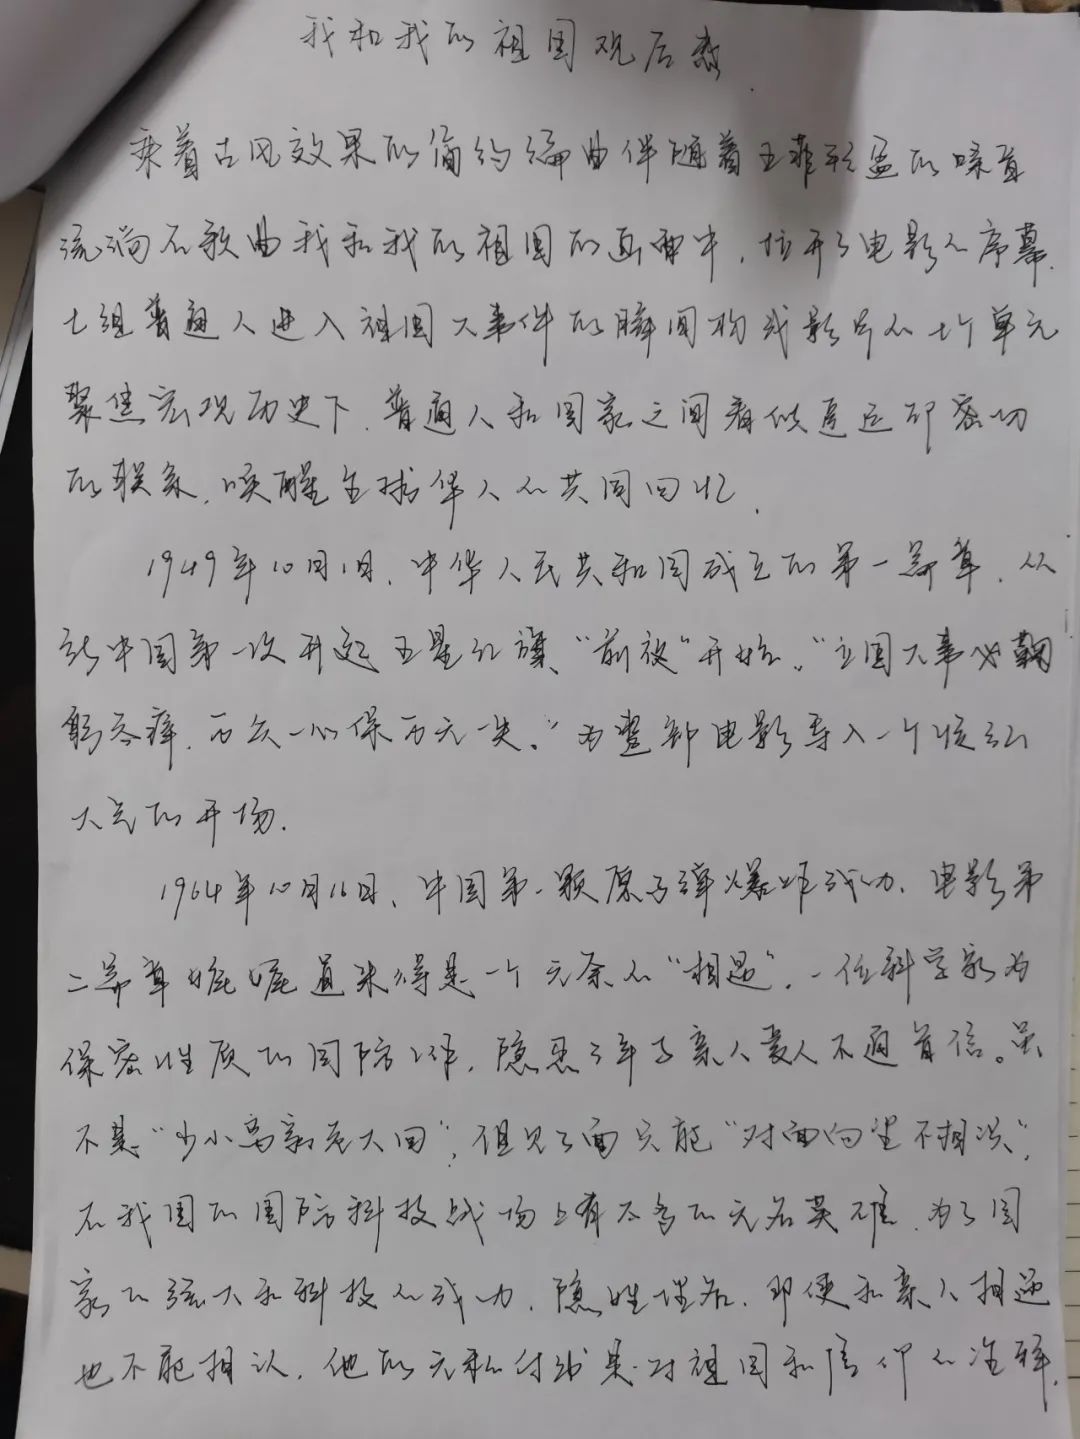 我和我的祖国观后感
乘着古风效果的简约编曲伴随着王菲轻盈的嗓音
流淌在歌曲我和我的祖国的画面中，拉开了电影的序幕.
七组普通人进入祖国大事件的瞬间构成影片的七个单元
聚焦宏观历史下，普通人和国家之间看似遥远却密切
的联系，唤醒全球华人的共同回忆.
1949年10月1日，中华人民共和国成立的第一篇章，从
新中国第一次升起五星红旗、“前夜”开始。“立国大事必鞠
躬尽瘁，万众一心保万无一失。”为整部电影导入一个恢弘
大气的开场.
1964年10月16日，中国第一颗原子弹爆炸成功，电影第
二篇章娓娓道来得是一个无奈的“相遇”，一位科学家为
保密性质的国防工作，隐忍三年与亲人爱人不通音信。虽
不是“少小离家老大回”，但见了面只能“对面向望不相识”，
在我国的国防科技战场上有太多的无名英雄，为了国
家的强大和科技的成功，隐姓埋名，即使和亲人相遇
也不能相认，他的无私付出是对祖国和信仰的诠释.